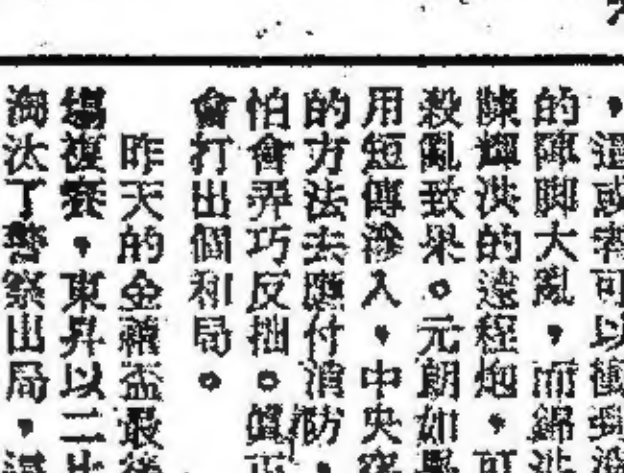 ，這或者可以衝到
的陣脚大亂，而錦
陳輝洪的遠程炮，可
殺亂致果。元朗如
用短傳滲入，中央
的方法去應付消防，
怕會弄巧反拙。眞正
會打出個和局。
昨天的金禧盃最後
場複賽，東昇以二比
淘汰了警察出局，